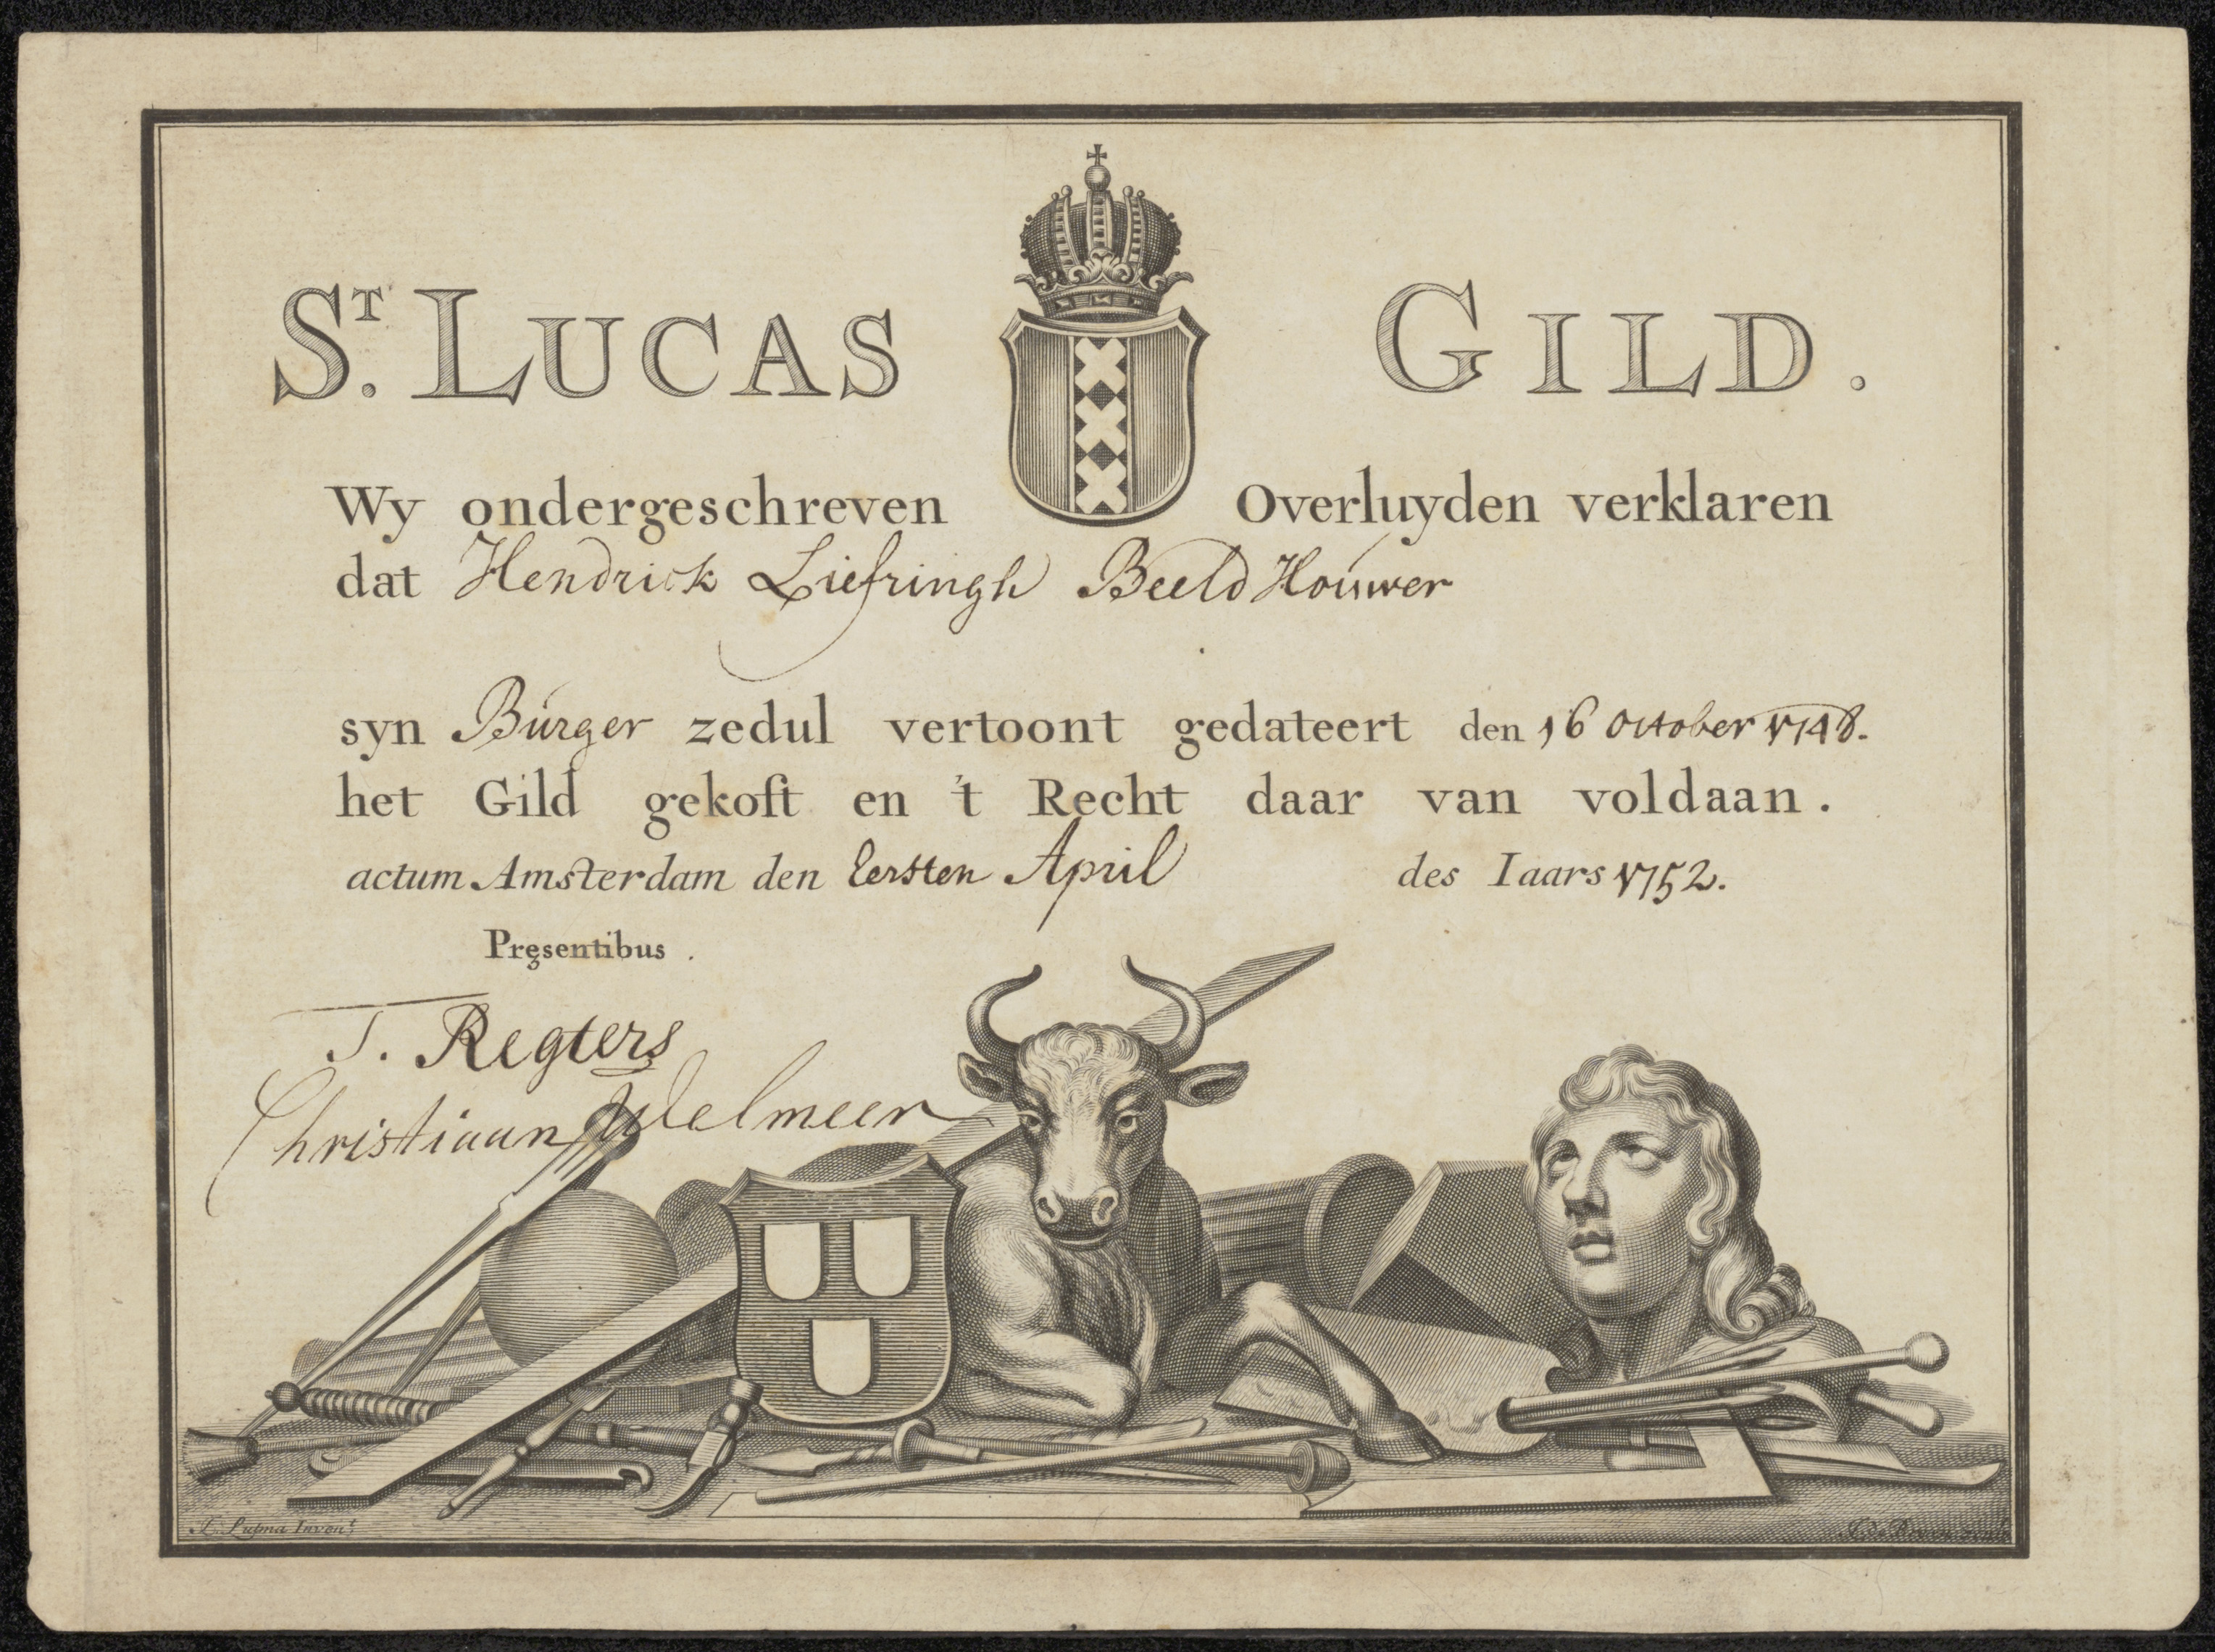 ST. LUCAS GILD.
Wy ondergeschreven Overluyden verklaren
dat Hendrick Liefringh Beeld Houwer
syn Burger zedul vertoont gedateert den 16 October 1748.
het Gild gekoft en 't Recht daar van voldaan.
actum Amsterdam den Eersten April des Iaars 1752.
Pręsentibus.
T. Regters
Christiaan Welmeer
Inven.t